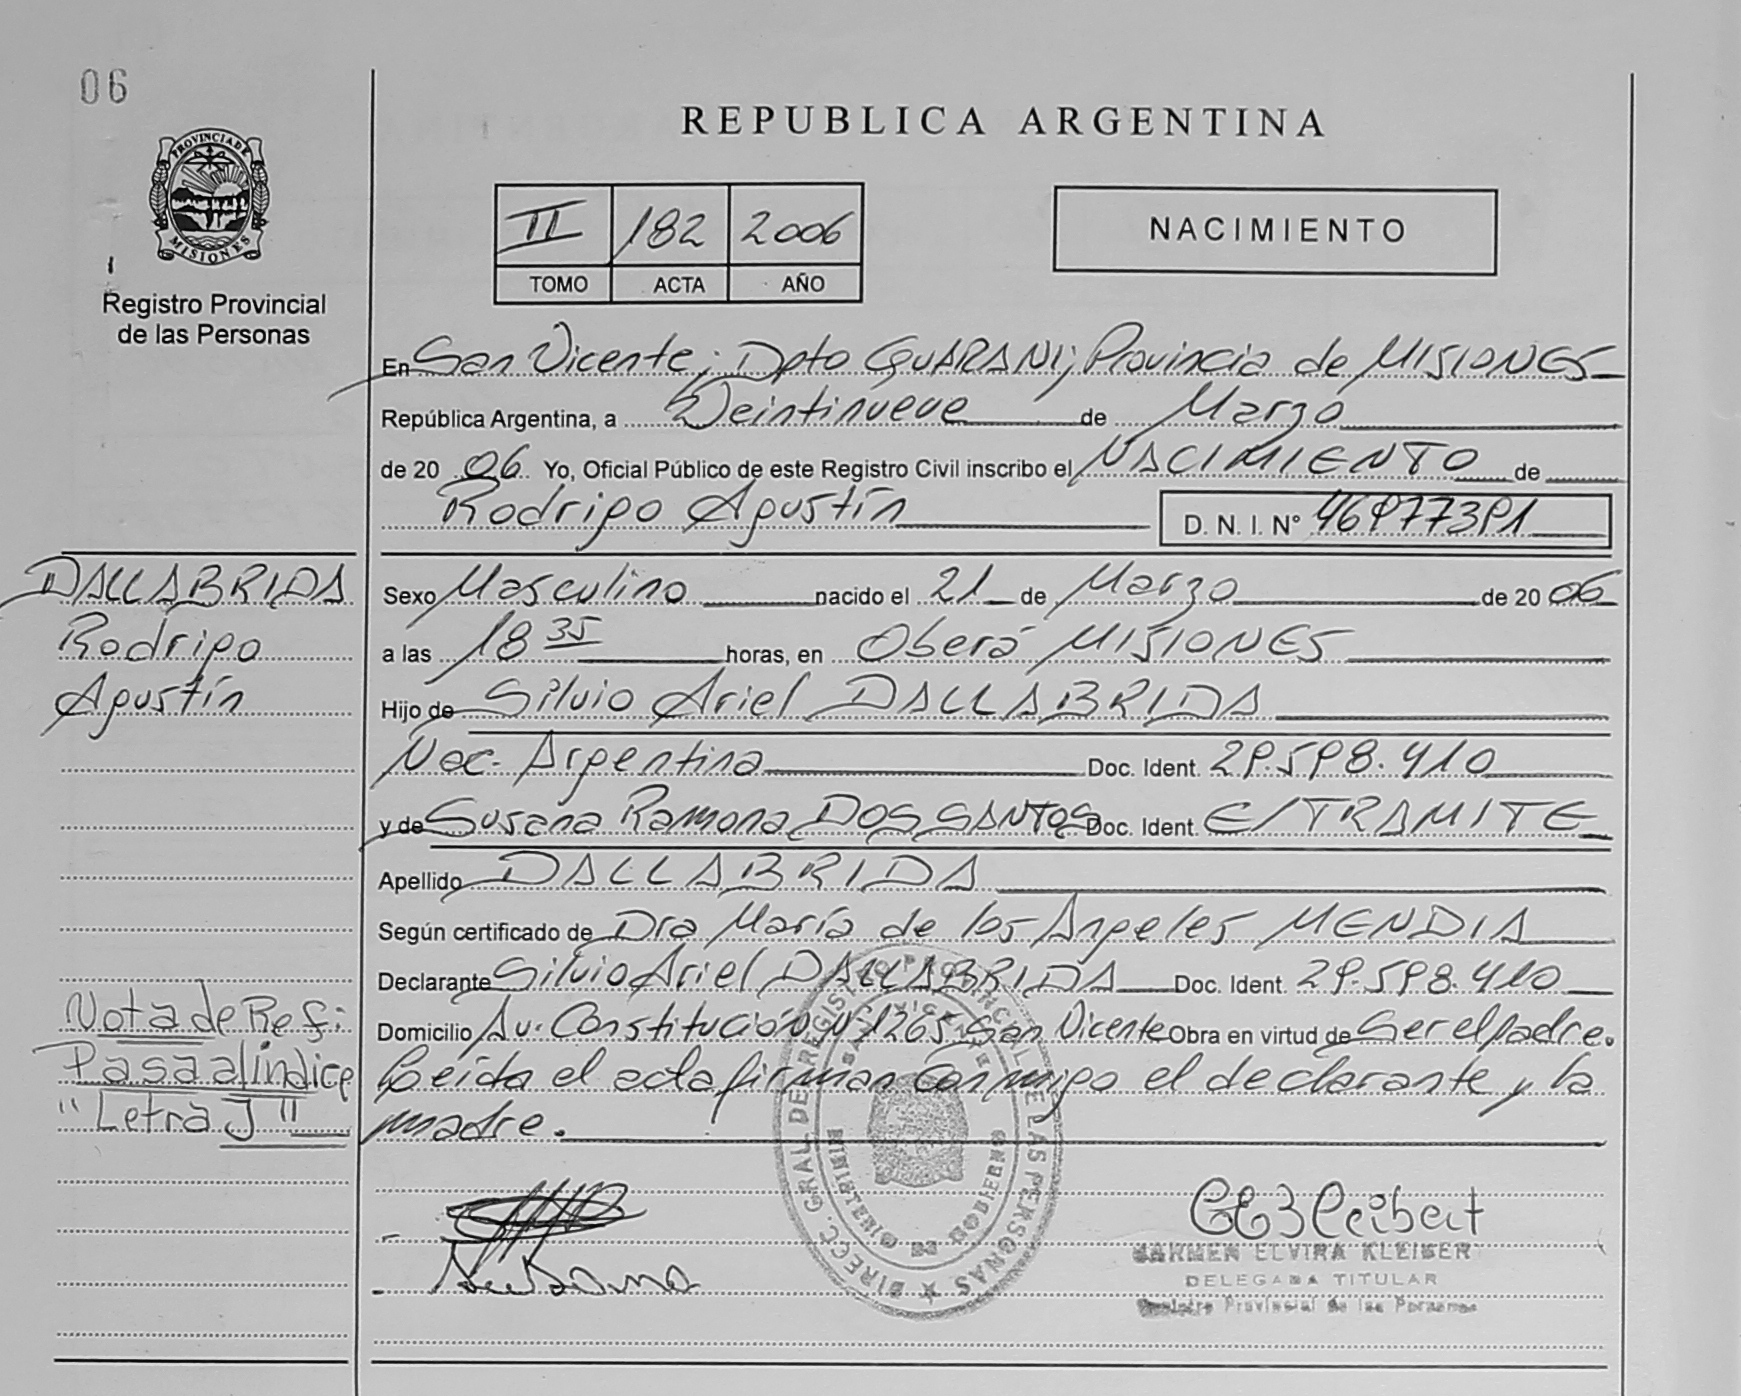 06
REPUBLICA ARGENTINA
PROVINCIA DE
MISIONES
Registro Provincial
de las Personas
II 182 2006
TOMO ACTA AÑO
NACIMIENTO
En San Vicente; Dpto GUARANI; Provincia de MISIONES
República Argentina, a Veintinueve de Marzo
de 20 06 Yo, Oficial Público de este Registro Civil inscribo el NACIMIENTO de
Rodrigo Agustín D. N. I. N° 46977391
DALLABRIDA
Rodrigo
Agustín
Sexo Masculino nacido el 21 de Marzo de 20 06
a las 18 35 horas, en Oberá MISIONES
Hijo de Silvio Ariel DALLABRIDA
Nac. Argentina Doc. Ident. 29.598.410
y de Susana Ramona DOS SANTOS Doc. Ident. E/TRAMITE
Apellido DALLABRIDA
Según certificado de Dra María de los Angeles MENDIA
Declarante Silvio Ariel DALLABRIDA Doc. Ident. 29.598.410
Domicilio Av. Constitución Nº 1265 San Vicente Obra en virtud de Ser el padre.
Leída el acta firman Conmigo el declarante y la
madre.
Nota de Ref:
Pasa al indice
"Letra J"
DIRECC. GRAL. DE REGISTRO PROVINCIAL DE LAS PERSONAS
SAN VICENTE
MINISTERIO DE GOBIERNO
CARMEN ELVIRA KLEIBER
DELEGADA TITULAR
Registro Provincial de las Personas